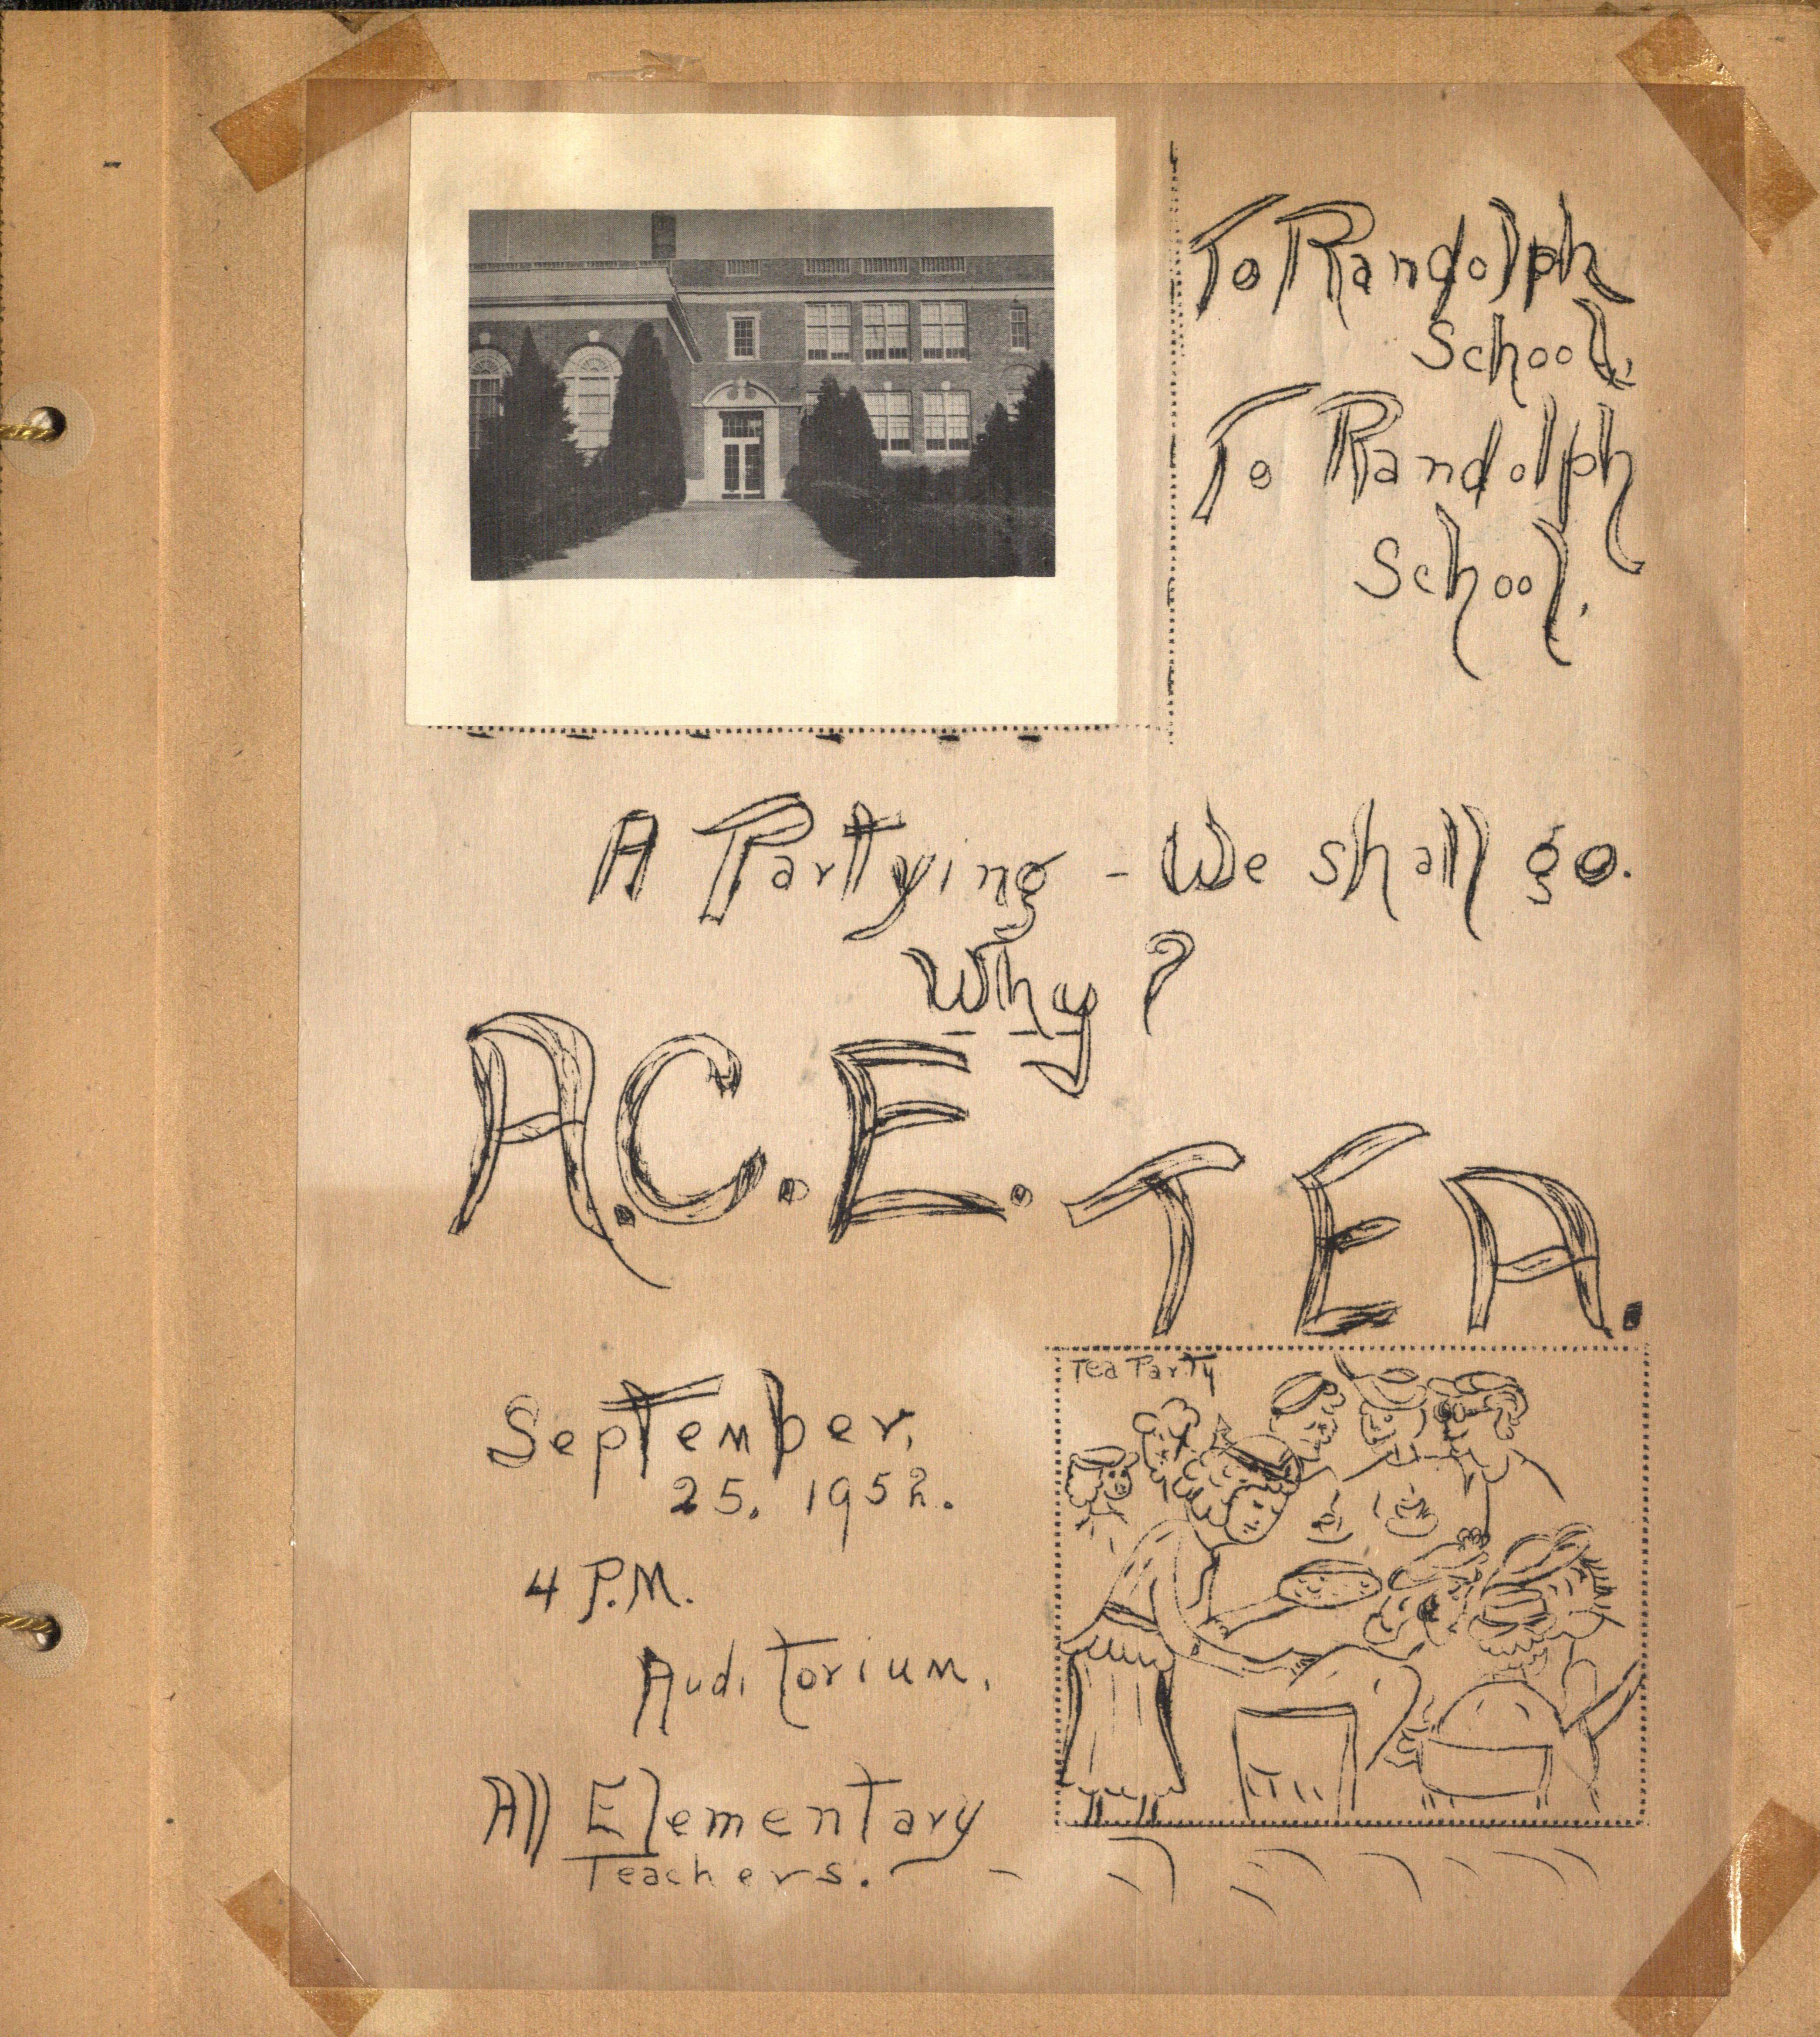 To Randolph
School,
To Randolph
School.
A Partying - We shall go.
Why?
A.C.E. TEA.
Tea Party
September,
25. 1952.
4 P.M.
Auditorium.
All Elementary
Teachers.